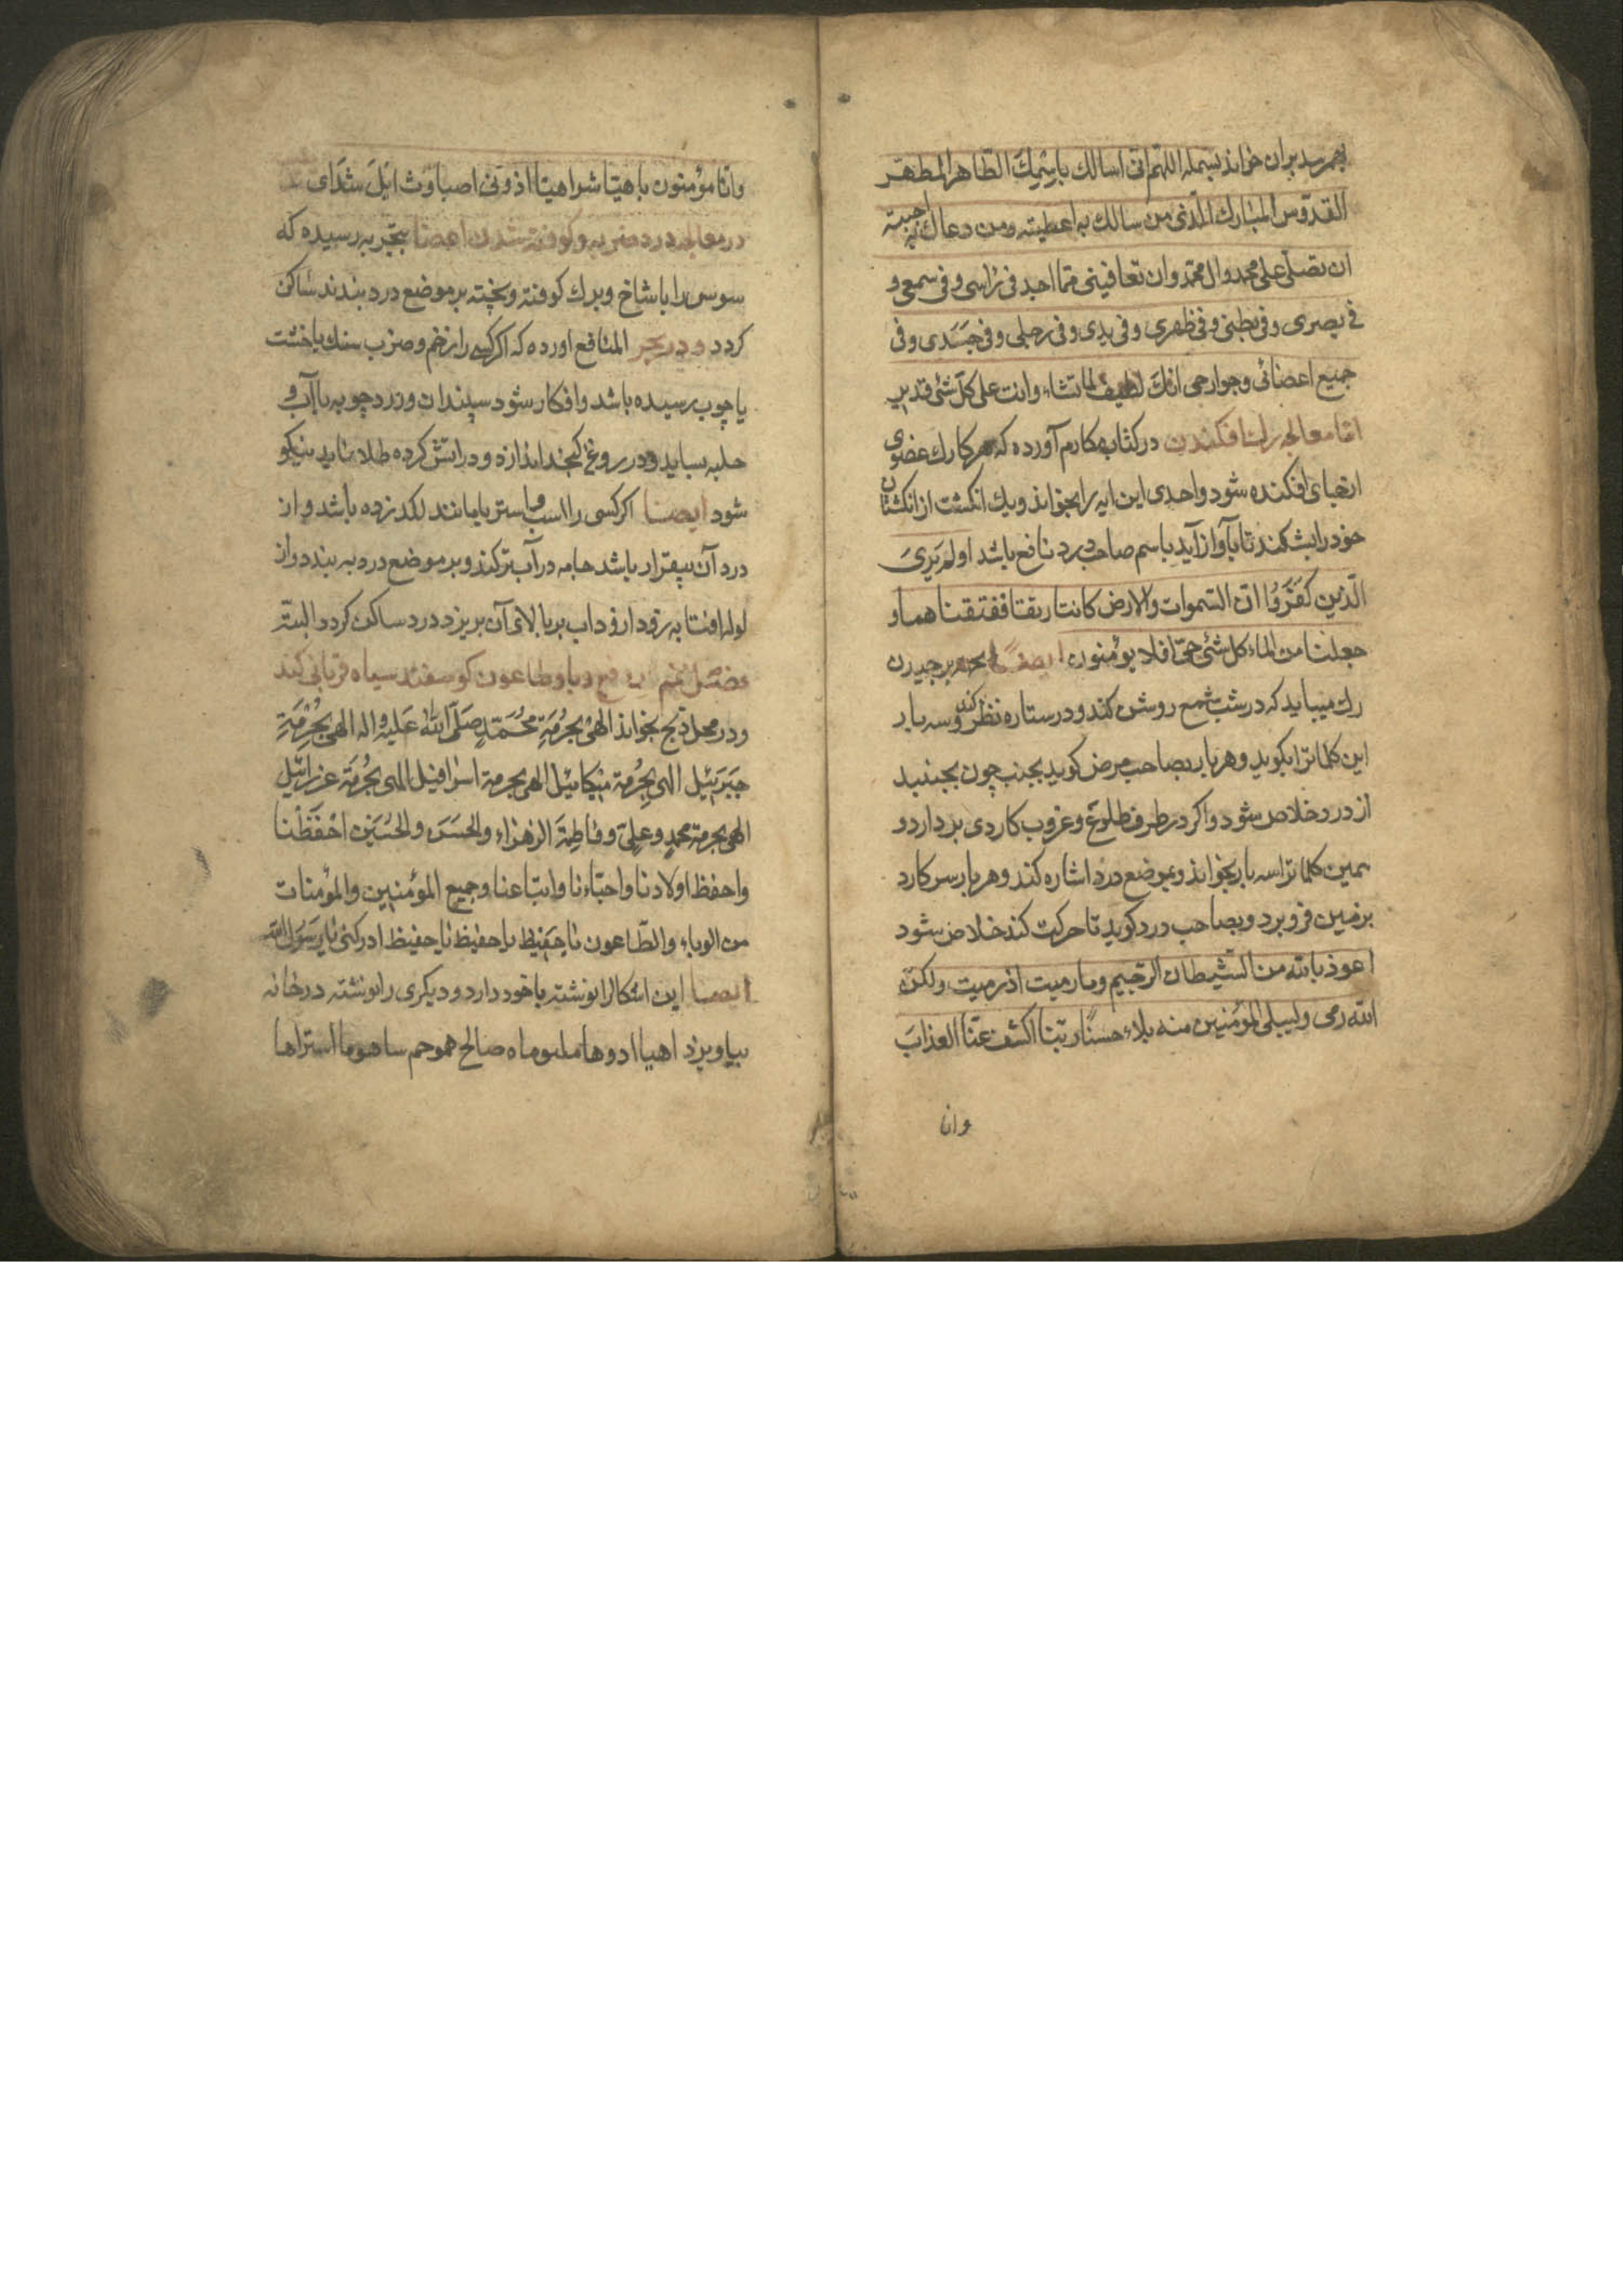 بهم رسد بران خواند بسمله اللهم انی اسالک باسمک الطاهر المطهر
القدوس المبارک الذی من سالک به اعطیته ومن دعاک به اجبته
ان تصلی علی محمد وال محمد وان تعافینی مما اجد فی راسی وفی سمعی و
فی بصری وفی بطنی وفی ظهری وفی یدی وفی رجلی وفی جسدی وفی
جمیع اعضائی وجوارحی انک لطیف لما تشاء وانت علی کل شئ قدیر
اما معالجه رک افکندن در کتاب مکارم آورده که هرکا رک عضوی
ازجای افکنده شود واحدی این ایه را بخواند ویک انکشت از انکشتان
خود را بشکند تا بآواز آید باسم صاحب درد نافع باشد اولم یری
الذین کفروا ان السموات والارض کانتا رتقا ففتقنا هما و
جعلنا من الماء کل شئ حی افلا یومنون ایضا بجهه برجیدن
رک میباید که در شب شمع روشن کند ودر ستاره نظر کند وسه بار
این کلماترا بکوید وهر بار بصاحب مرض کوید بجنب چون بجنبید
از درد خلاص شود واکر در طرف طلوع وغروب کاردی بردارد و
همین کلماترا سه بار بخواند وبموضع درد اشاره کند وهر بار سر کارد
بر زمین فرو برد وبصاحب درد کوید تا حرکت کند خلاص شود
اعوذ بالله من الشیطان الرجیم وما رمیت اذ رمیت ولکن
الله رمی ولیبلی المؤمنین منه بلاء حسنا ربنا اکشف عنا العذاب
وانا
وانا مؤمنون یا هیتا شرا هیتا اذونی اصباوث ایل شدای
در معالجه درد ضربه وکوفته شدن اعضا بتجربه رسیده که
سوسن را با شاخ وبرک کوفته وپخته بر موضع درد بندند ساکن
کردد ودر بحر المنافع اورده که اکر کسی را زخم وضرب سنک یا خشت
یا چوب رسیده باشد وافکار شود سپندان وزردچوبه با آب و
حلبه بساید ودر روغن کنجد اندازد ودر اتش کرده طلا نماید نیکو
شود ایضا اکر کسی را اسب و استر یا مانند لکد زده باشد واز
درد آن بیقرار باشد جامه در آب تر کند وبر موضع درد به بندد واز
لوله افتابه بر بالای آن بریزد درد ساکن کردد البته
فصل در دفع وبا وطاعون کوسفند سیاه قربانی کند
ودر محل ذبح بخواند الهی بحرمة محمد صلی الله علیه واله الهی بحرمة
جبرئیل الهی بحرمة میکائیل الهی بحرمة اسرافیل الهی بحرمة عزرائیل
الهی بحرمة محمد وعلی وفاطمة الزهراء والحسن والحسین احفظنا
واحفظ اولادنا واحباءنا واتباعنا وجمیع المؤمنین والمؤمنات
من الوباء والطاعون یا حفیظ یا حفیظ یا حفیظ ادرکنی یا رسول الله
ایضا این اشکال را نوشته با خود دارد ودیکری را نوشته در خانه
بیاویزد اهیا ادوها صالح هموحم ساهوما استراها